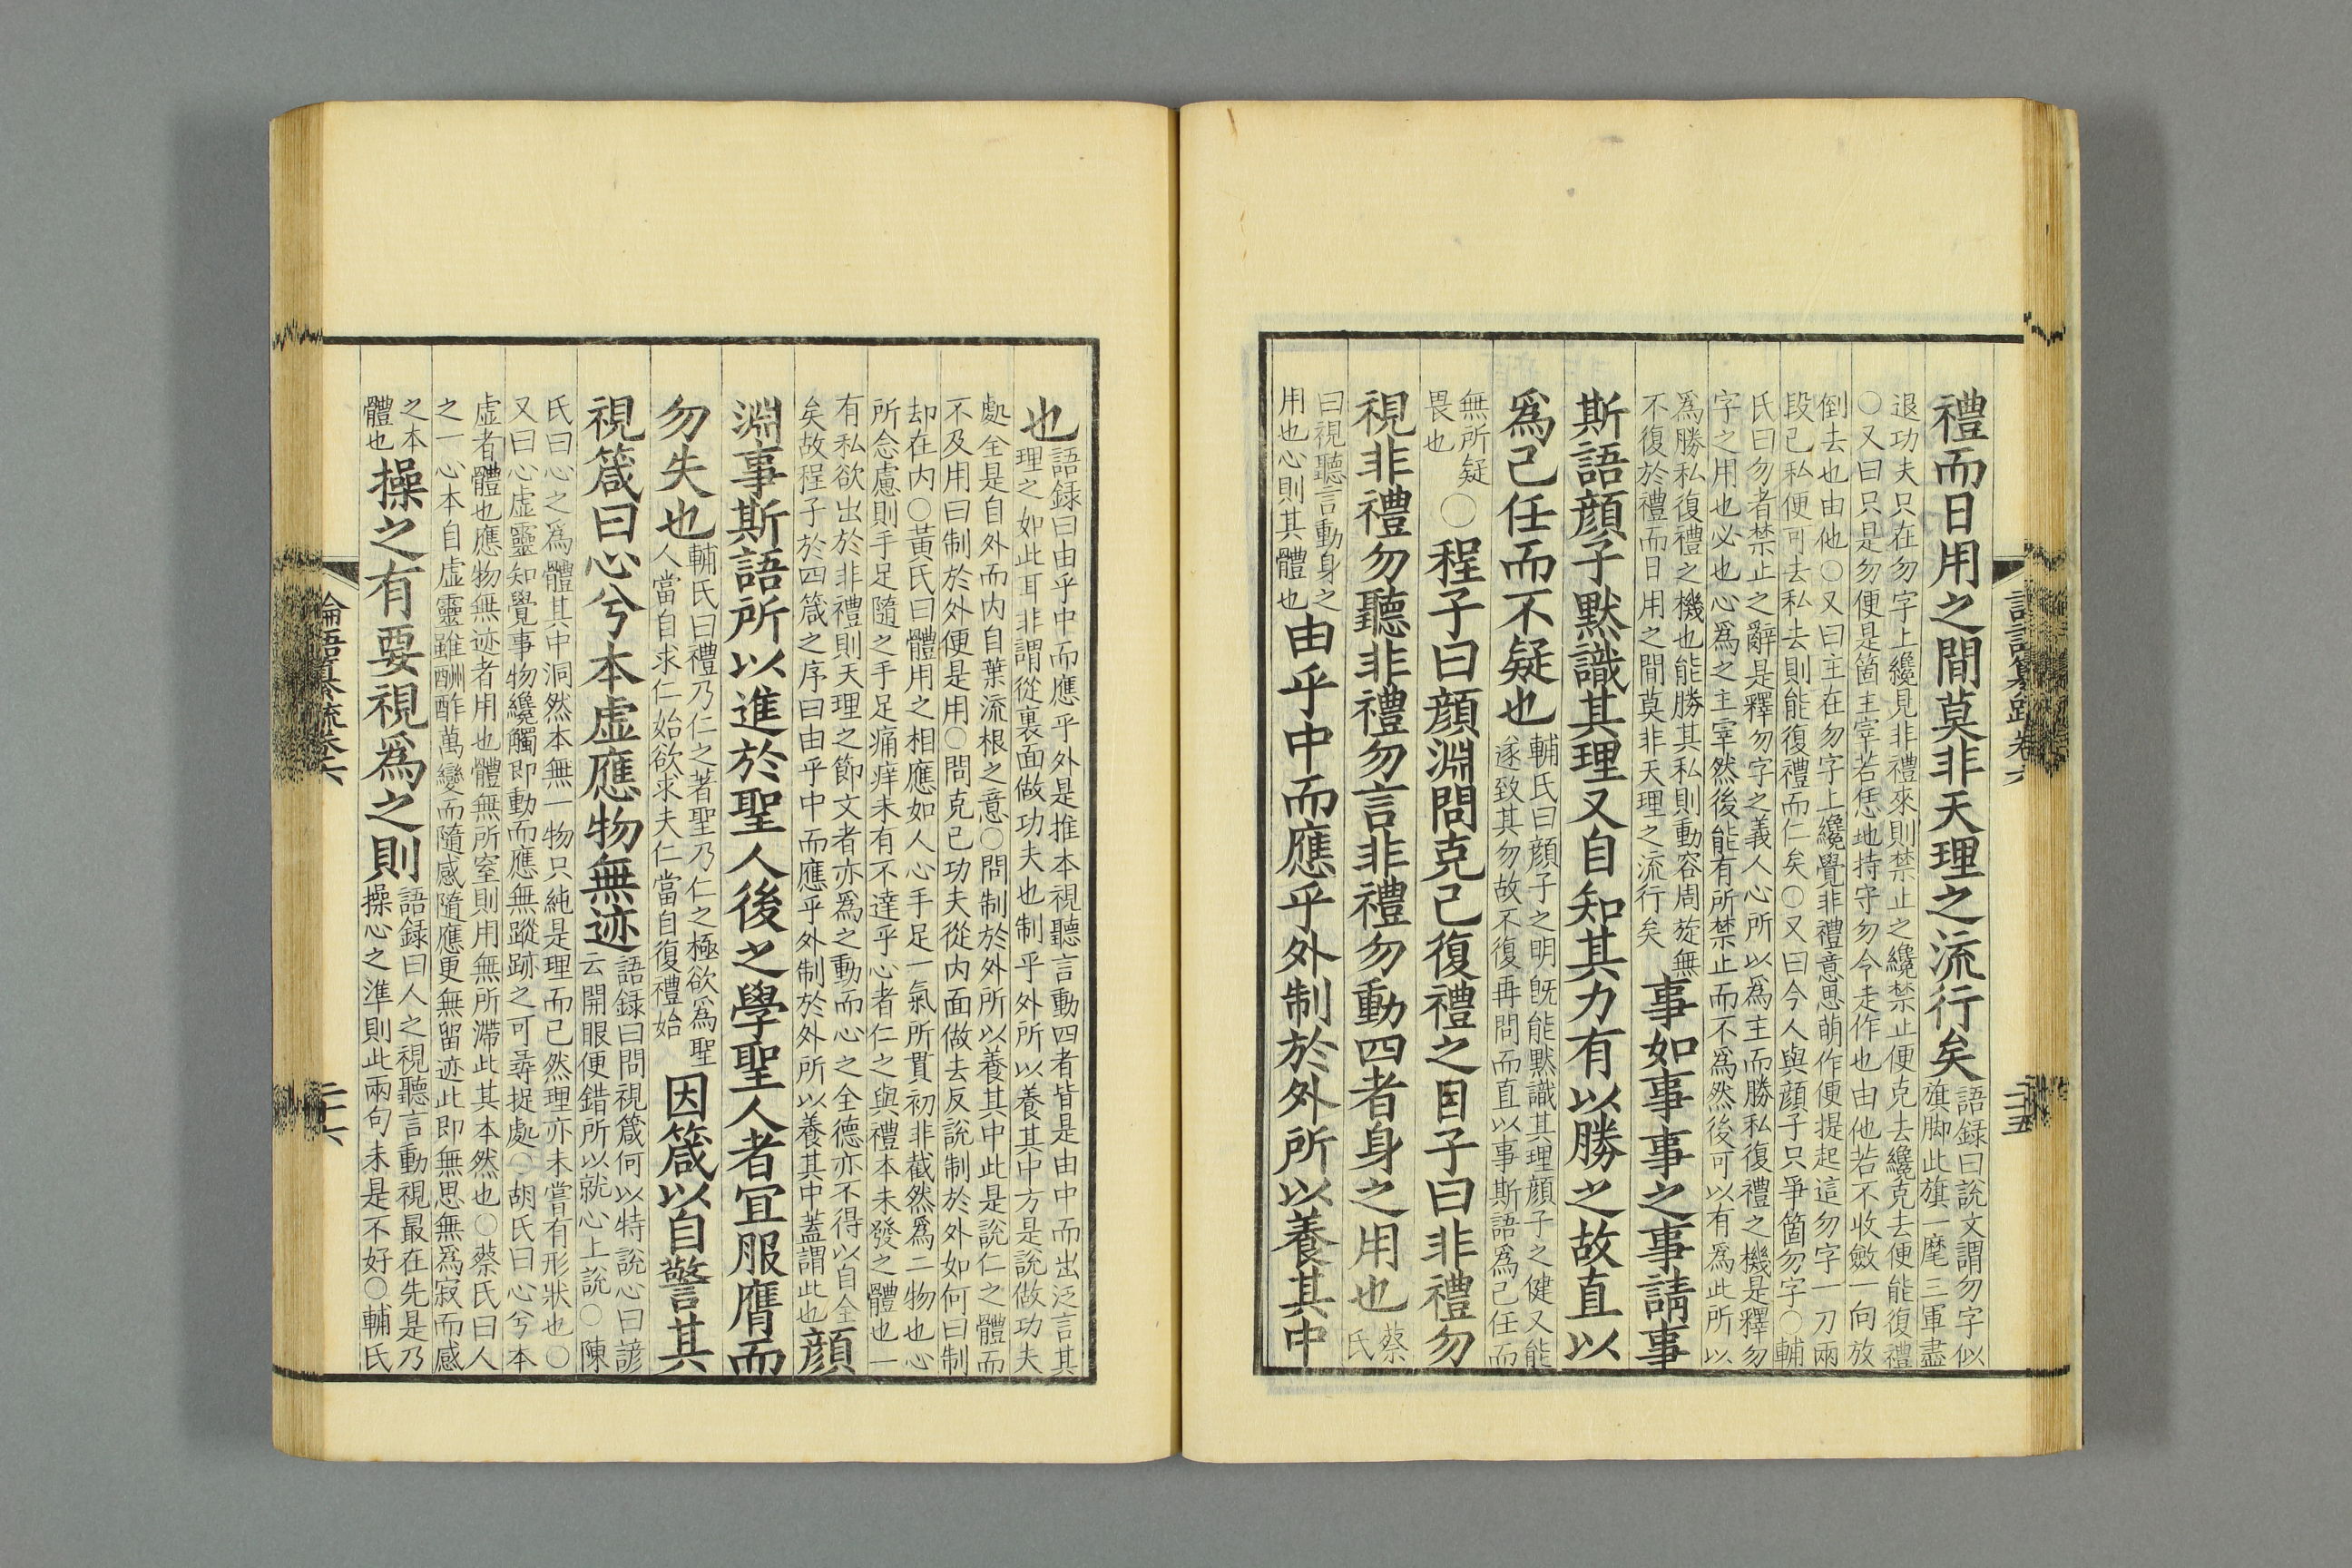 論語纂疏卷六
二十五
禮而日用之間莫非天理之流行矣語録曰説文謂勿字似
旗脚此旗一麾三軍盡
退功夫只在勿字上纔見非禮來則禁止之纔禁止便克去纔克去便能復禮
○又曰只是勿便是箇主宰若恁地持守勿令走作也由他若不收斂一向放
倒去也由他○又曰主在勿字上纔覺非禮意思萌作便提起這勿字一刀兩
段己私便可去私去則能復禮而仁矣○又曰今人與顔子只爭箇勿字○輔
氏曰勿者禁止之辭是釋勿字之義人心所以為主而勝私復禮之機是釋勿
字之用也必也心爲之主宰然後能有所禁止而不爲然後可以有爲此所以
爲勝私復禮之機也能勝其私則動容周旋無
不復於禮而日用之間莫非天理之流行矣
事如事事之事請事
斯語顔子默識其理又自知其力有以勝之故直以
爲己任而不疑也輔氏曰顔子之明既能默識其理顔子之健又能
遂致其勿故不復再問而直以事斯語爲己任而
無所疑
畏也
○程子曰顔淵問克己復禮之目子曰非禮勿
視非禮勿聽非禮勿言非禮勿動四者身之用也蔡
氏
曰視聽言動身之
用也心則其體也
由乎中而應乎外制於外所以養其中
也語録曰由乎中而應乎外是推本視聽言動四者皆是由中而出泛言其
理之如此耳非謂從裏面做功夫也制乎外所以養其中方是説做功夫
處全是自外而内自葉流根之意○問制於外所以養其中此是説仁之體而
不及用曰制於外便是用○問克己功夫從内面做去反説制於外如何曰制
却在内○黃氏曰體用之相應如人心手足一氣所貫初非截然爲二物也心
所念慮則手足隨之手足痛痒未有不達乎心者仁之與禮本未發之體也一
有私欲出於非禮則天理之節文者亦爲之動而心之全德亦不得以自全
矣故程子於四箴之序曰由乎中而應乎外制於外所以養其中蓋謂此也
顔
淵事斯語所以進於聖人後之學聖人者宜服膺而
勿失也輔氏曰禮乃仁之著聖乃仁之極欲爲聖
人當自求仁始欲求夫仁當自復禮始
因箴以自警其
視箴曰心兮本虛應物無迹語録曰問視箴何以特説心曰諺
云開眼便錯所以就心上説○陳
氏曰心之爲體其中洞然本無一物只純是理而已然理亦未嘗有形狀也○
又曰心虛靈知覺事物纔觸即動而應無蹤跡之可尋捉處○胡氏曰心兮本
虛者體也應物無迹者用也體無所窒則用無所滯此其本然也○蔡氏曰人
之一心本自虛靈雖酬酢萬變而隨感隨應更無留迹此即無思無爲寂而感
之本
體也
操之有要視爲之則語録曰人之視聽言動視最在先是乃
操心之準則此兩句未是不好○輔氏
論語纂疏卷六
二十六